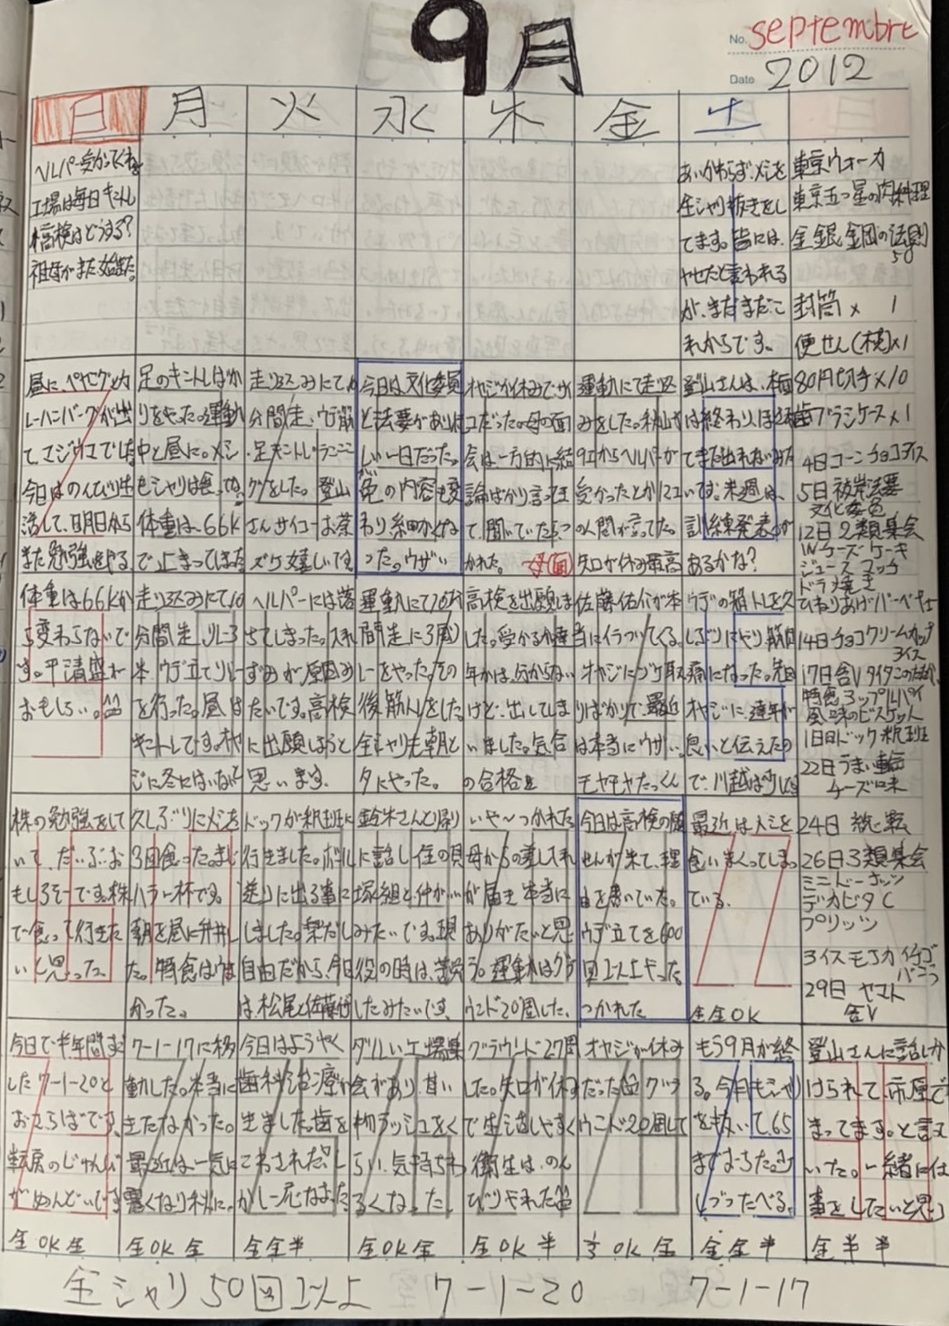 9月
No. septembre
Date 2012
日 月 火 水 木 金 土
ヘルパー受かってくれ
工場は毎日キンし
高検はどうする?
祖母がまた始また。
あいかわらず、メシを
全シャリ抜きをし
てます。皆には、
やせたと言われる
が、まだまだこ
れからです。
東京ウォーカー
東京五つ星の肉料理
金銀、金岡の法則
50
封筒 × 1
便せん(横)×1
80円切手×10
歯ブラシケース×1
4日コーンチョコアイス
5日 被害法要
文化委員
12日 2類集会
Wチーズケーキ
ジュース マッチ
ドラ焼き
ひねりあげバーベキュー
14日 チョコクリームカップ
アイス
特食 アップルパイ
22日 うまい輪
チーズ味
24日 統一転
26日 3類集会
ミニドーナッツ
デカビタC
プリッツ
アイスモナカ イチゴ
バニラ
29日 ヤマト
全V
昼に、ペヤングとカ
レーハンバーグが出
て、マジウマでした
今日はのんびり生
活して、明日から
また勉強をやる
足のキントレばか
りをやった。運動
中と昼に。メシ
もシャリは食ってない
体重は、66K
で止まってます
走り込みにて
分間走、ウデ筋
・足キントレラニン
グをした。登山
さんサイコーお茶
ズケ嬉しいです
今日は、文化委員
と法要があり忙
しい一日だった。
の内容も変
わり細かくな
った。ウザい
オヤジが休みでサ
イコだった。母の面
会は一方的に結
論ばかり言って
て聞いていた
かれた。 母 面
運動にて走り込
みをした。秋山が
ヘルパーが
受かったとかマエ
の人間が言ってた。
矢口が休み最高
登山さんは、本面
は終わりほぼ
てまた出れないみた
いです、来週は、
訓練発表が
あるかな?
体重は66Kか
ら変わらないで
す。平清盛が
おもしろい。
走り込みにて10
分間走、リレー3
本 ウデ立てリレー
を行った。昼は
キントレしてます。オヤ
ヘルパーには落
ちてしまった。入れ
ずみが原因み
たいです。高検
に出願しようと
思います。
運動にて10分
間走に3周リ
レーをやった。その
後筋トレをした
全シャリも朝と
夕にやった。
高検を出願しま
した。受かるか
年かは、分からない
けど、出してしま
いました。気合
の合格を
佐藤佑介が本
当にイラついてくる。
オヤジにつげ口
りばかりで、最近
は本当にウザい。
モヤモヤたっくん
ウデの筋トレを久
しぶりにやり筋肉
痛になった。
オヤジに、来年が
良いと伝えたの
で、川越は少し
株の勉強をして
いて、だいぶお
もしろそーです。株
で食って行きた
いと思った。
久しぶりにメシを
3回食ったまじ
ハラ一杯です。
朝と昼に丼丼し
た。特食はウま
かった。
ドックが釈班に
行きました。ボル
送りに出る事に
しました。梨だし
自由だから、今日
は松尾と佐藤佑
鈴木さんと周り
に話し住の貝
塚組と仲がいい
みたいです。現
役の時は、苦労
したみたいです。
いや〜つかれた
母からの差し入れ
が届き 本当に
ありがたいと思
う。運動はグラ
ウンド20周した。
今日は高検の
せんが来て、理
由を書いていた。
ウデ立てを600
回以上やった
つかれた
最近はメシを
食いまくってしまっ
ている。
全全OK
今日で半年間すご
した7-1-20と
おさらばです。
転房のじゅんび
がめんどいです
全OK全
7-1-17に移
動した。本当に
きたなかった。
最近は一気に
寒くなり秋に。
全OK全
今日はようやく
歯科治療が
きました。歯を
こわされた
全全半
ダルい工場集
会があり、甘い
物ラッシュをく
らい、気持ちわ
るくなった
全OK全
グラウンド27周
した。矢口が休み
で生活しやすく
衛生は、のん
びりやれた
全OK半
オヤジが休み
だった グラ
ウンド20周して
OK 全
もう9月が終
る。今月もシャリ
を抜いて、65
までおちた。少
しづつたべる。
全全半
登山さんに話しか
けられて市原で
まってます。と言って
いた。一緒に仕
事をしたいと思う
全半半
全シャリ50回以上 7-1-20 7-1-17